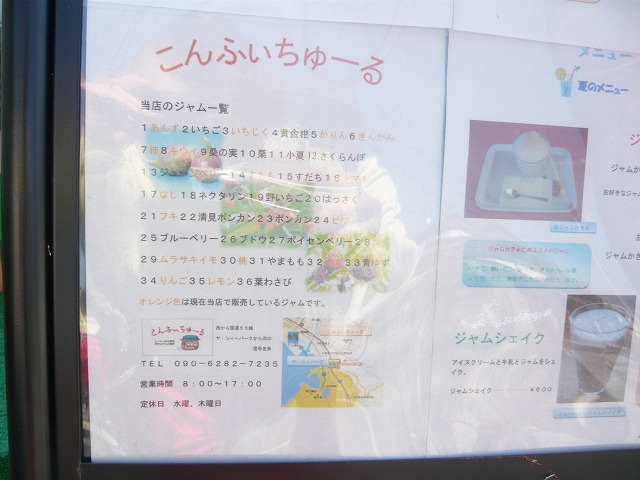 こんふぃちゅーる
当店のジャム一覧
1あんず2いちご3いちじく4黄金柑5かりん6きんかん
7柿8キウイ9桑の実10栗11小夏12さくらんぼ
15すだち16トマト
17なし18ネクタリン19野いちご20はっさく
21フキ22清見ポンカン23ポンカン24ビワ
25ブルーベリー26ブドウ27ボイセンベリー28
29ムラサキイモ30桃31やまもも32 33青ゆず
34りんご35レモン36葉わさび
オレンジ色は現在当店で販売しているジャムです。
こんふぃちゅーる
西から国道56線
ザ・シィーパークから次の
信号左角
TEL 090-6282-7235
営業時間 8:00～17:00
定休日 水曜、木曜日
メニュー
夏のメニュー
ジャムか
お好きなジャム
ジャム
ジャムかき
ジャムシェイク
アイスクリームと牛乳とジャムをシェ
イク。
ジャムシェイク ¥600